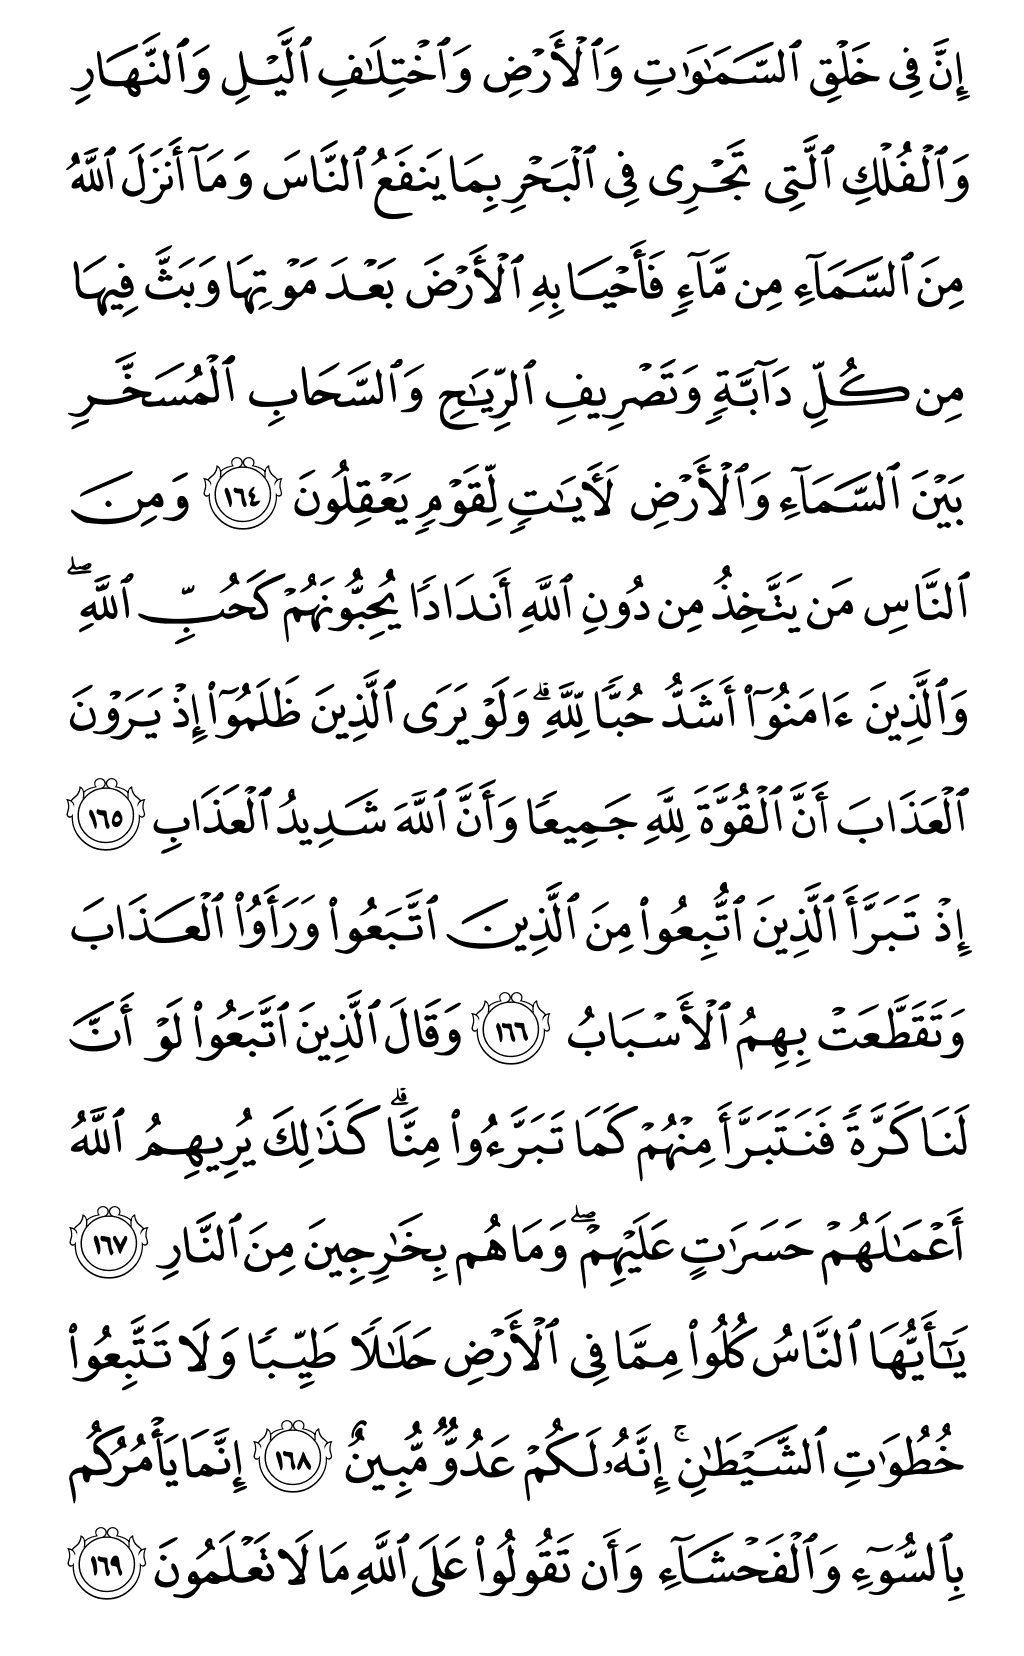 إِنَّ فِى خَلْقِ ٱلسَّمَـٰوَٰتِ وَٱلْأَرْضِ وَٱخْتِلَـٰفِ ٱلَّيْلِ وَٱلنَّهَارِ
وَٱلْفُلْكِ ٱلَّتِى تَجْرِى فِى ٱلْبَحْرِ بِمَا يَنفَعُ ٱلنَّاسَ وَمَآ أَنزَلَ ٱللَّهُ
مِنَ ٱلسَّمَآءِ مِن مَّآءٍ فَأَحْيَا بِهِ ٱلْأَرْضَ بَعْدَ مَوْتِهَا وَبَثَّ فِيهَا
مِن كُلِّ دَآبَّةٍ وَتَصْرِيفِ ٱلرِّيَـٰحِ وَٱلسَّحَابِ ٱلْمُسَخَّرِ
بَيْنَ ٱلسَّمَآءِ وَٱلْأَرْضِ لَـَٔايَـٰتٍ لِّقَوْمٍ يَعْقِلُونَ ١٦٤ وَمِنَ
ٱلنَّاسِ مَن يَتَّخِذُ مِن دُونِ ٱللَّهِ أَندَادًا يُحِبُّونَهُمْ كَحُبِّ ٱللَّهِ ۖ
وَٱلَّذِينَ ءَامَنُوٓا۟ أَشَدُّ حُبًّا لِّلَّهِ ۗ وَلَوْ يَرَى ٱلَّذِينَ ظَلَمُوٓا۟ إِذْ يَرَوْنَ
ٱلْعَذَابَ أَنَّ ٱلْقُوَّةَ لِلَّهِ جَمِيعًا وَأَنَّ ٱللَّهَ شَدِيدُ ٱلْعَذَابِ ١٦٥
إِذْ تَبَرَّأَ ٱلَّذِينَ ٱتُّبِعُوا۟ مِنَ ٱلَّذِينَ ٱتَّبَعُوا۟ وَرَأَوُا۟ ٱلْعَذَابَ
وَتَقَطَّعَتْ بِهِمُ ٱلْأَسْبَابُ ١٦٦ وَقَالَ ٱلَّذِينَ ٱتَّبَعُوا۟ لَوْ أَنَّ
لَنَا كَرَّةً فَنَتَبَرَّأَ مِنْهُمْ كَمَا تَبَرَّءُوا۟ مِنَّا ۗ كَذَٰلِكَ يُرِيهِمُ ٱللَّهُ
أَعْمَـٰلَهُمْ حَسَرَٰتٍ عَلَيْهِمْ ۖ وَمَا هُم بِخَـٰرِجِينَ مِنَ ٱلنَّارِ ١٦٧
يَـٰٓأَيُّهَا ٱلنَّاسُ كُلُوا۟ مِمَّا فِى ٱلْأَرْضِ حَلَـٰلًا طَيِّبًا وَلَا تَتَّبِعُوا۟
خُطُوَٰتِ ٱلشَّيْطَـٰنِ ۚ إِنَّهُۥ لَكُمْ عَدُوٌّ مُّبِينٌ ١٦٨ إِنَّمَا يَأْمُرُكُم
بِٱلسُّوٓءِ وَٱلْفَحْشَآءِ وَأَن تَقُولُوا۟ عَلَى ٱللَّهِ مَا لَا تَعْلَمُونَ ١٦٩